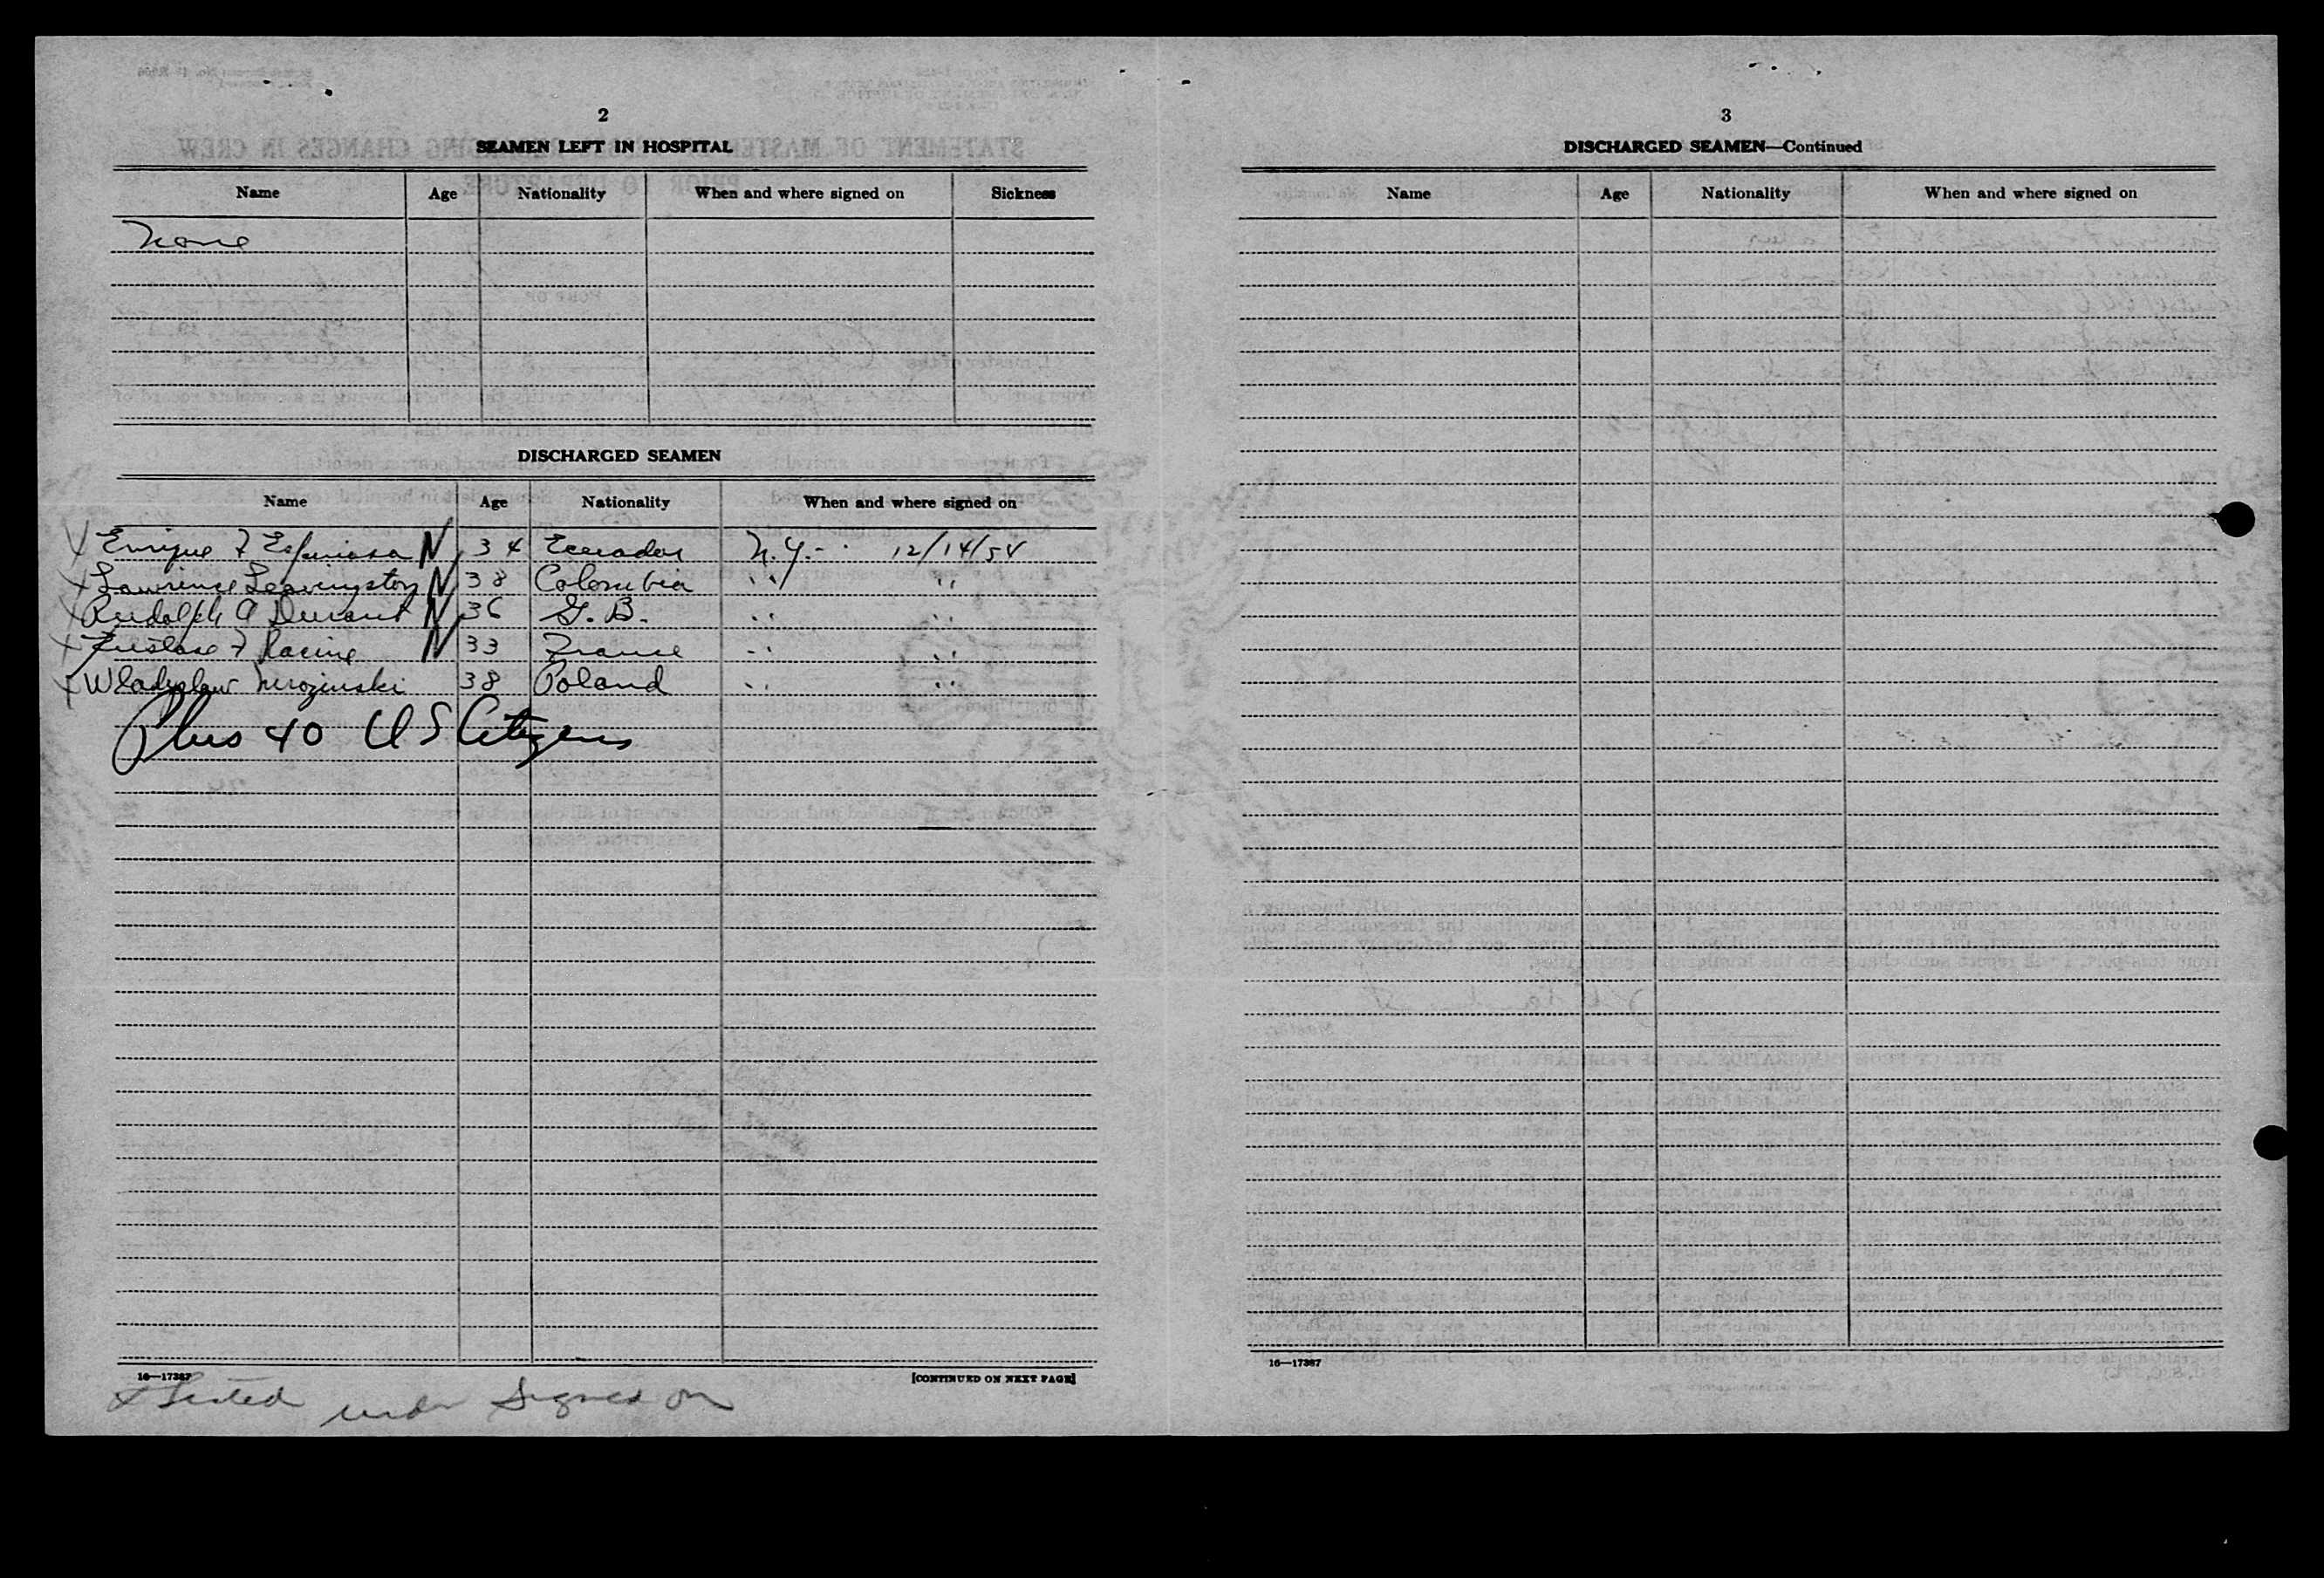 2
SEAMEN LEFT IN HOSPITAL
Name Age Nationality When and where signed on Sickness
None
DISCHARGED SEAMEN
Name Age Nationality When and where signed on
X Enrique F Espinosa N 34 Ecuador N.Y. - 12/14/54
X Lawrence Leavingston N 38 Colombia " "
X Rudolph A Durant N 36 G. B. " "
X F Racine N 33 France " "
X Wladyslaw 38 Poland " "
Plus 40 US Citizens
16—17387 [CONTINUED ON NEXT PAGE]
X Listed under Signed on
3
DISCHARGED SEAMEN—Continued
Name Age Nationality When and where signed on
16—17387